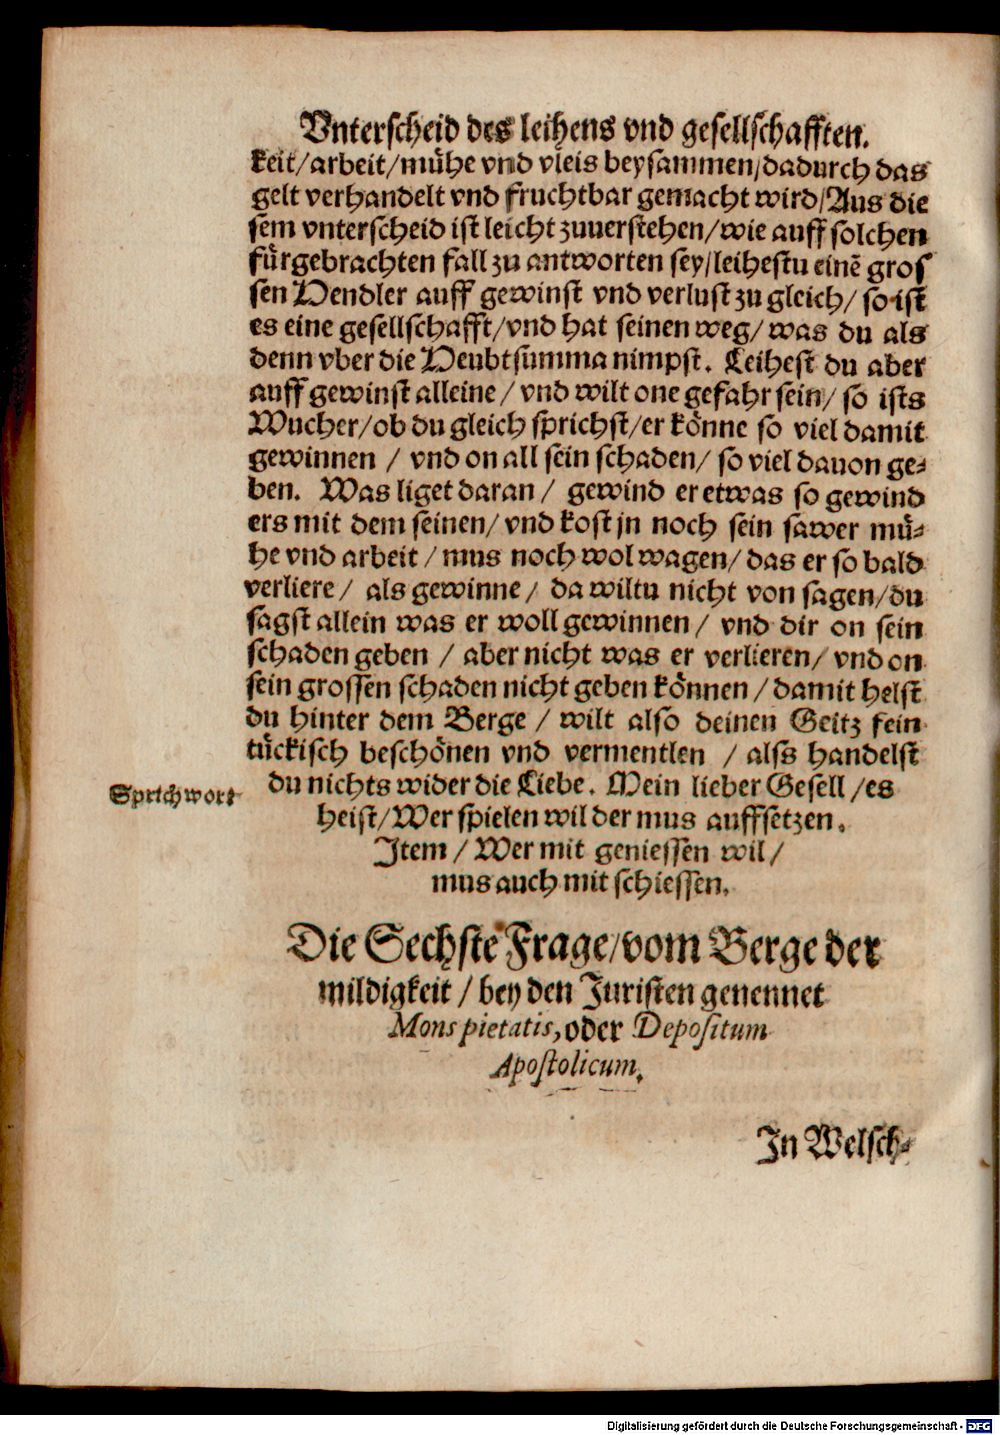 Vnterscheid des leihens vnd gesellschafften.
keit/arbeit/mühe vnd vleis beysammen/dadurch das
gelt verhandelt vnd fruchtbar gemacht wird/Aus die
sem vnterscheid ist leicht zuuerstehen/wie auff solchen
fürgebrachten fall zu antworten sey/leihestu einẽ gros
sen Hendler auff gewinst vnd verlust zu gleich/ so ist
es eine gesellschafft/vnd hat seinen weg/ was du als
denn vber die Heubtsumma nimpst. Leihest du aber
auff gewinst alleine / vnd wilt one gefahr sein/ so ists
Wucher/ob du gleich sprichst/er könne so viel damit
gewinnen / vnd on all sein schaden/ so viel dauon ge-
ben. Was liget daran / gewind er etwas so gewind
ers mit dem seinen/ vnd kost jn noch sein sawer mü-
he vnd arbeit / mus noch wol wagen/ das er so bald
verliere / als gewinne / da wiltu nicht von sagen/du
sagst allein was er woll gewinnen / vnd dir on sein
schaden geben / aber nicht was er verlieren/ vnd on
sein grossen schaden nicht geben können / damit helst
du hinter dem Berge / wilt also deinen Geitz fein
tückisch beschönen vnd vermentlen / alss handelst
Sprichwort
du nichts wider die Liebe. Mein lieber Gesell /es
heist/Wer spielen wil der mus auffsetzen.
Item / Wer mit geniessen wil/
mus auch mit schiessen.
Die Sechste Frage/vom Berge der
mildigkeit / bey den Juristen genennet
Mons pietatis, oder Depositum
Apostolicum.
In Welsch-
Digitalisierung gefördert durch die Deutsche Forschungsgemeinschaft - DFG